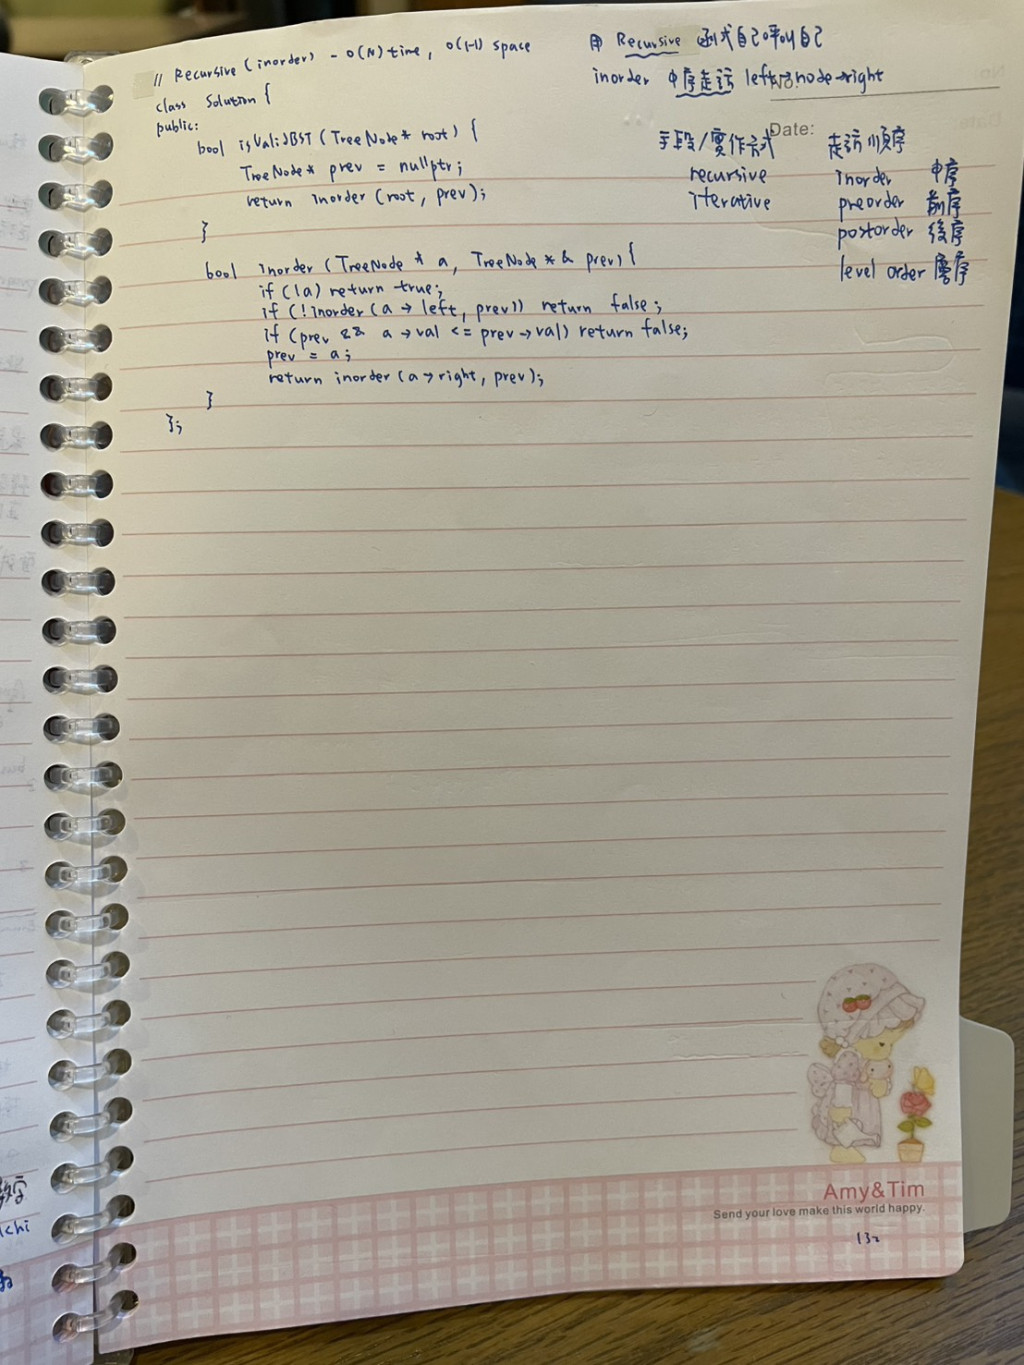 // Recursive (inorder) - O(N) time, O(H) space
class Solution {
public:
bool isValidBST (TreeNode* root) {
TreeNode* prev = nullptr;
return inorder (root, prev);
}
bool inorder (TreeNode * a, TreeNode *& prev) {
if (!a) return true;
if (!inorder (a → left, prev)) return false;
if (prev && a →val <= prev →val) return false;
prev = a;
return inorder (a → right, prev);
}
};
用 Recursive 函式自己呼叫自己
inorder 中序走訪 left→node→right
No:
Date:
手段/實作方式 走訪順序
recursive inorder 中序
iterative preorder 前序
postorder 後序
level order 層序
Amy&Tim
Send your love make this world happy.
132